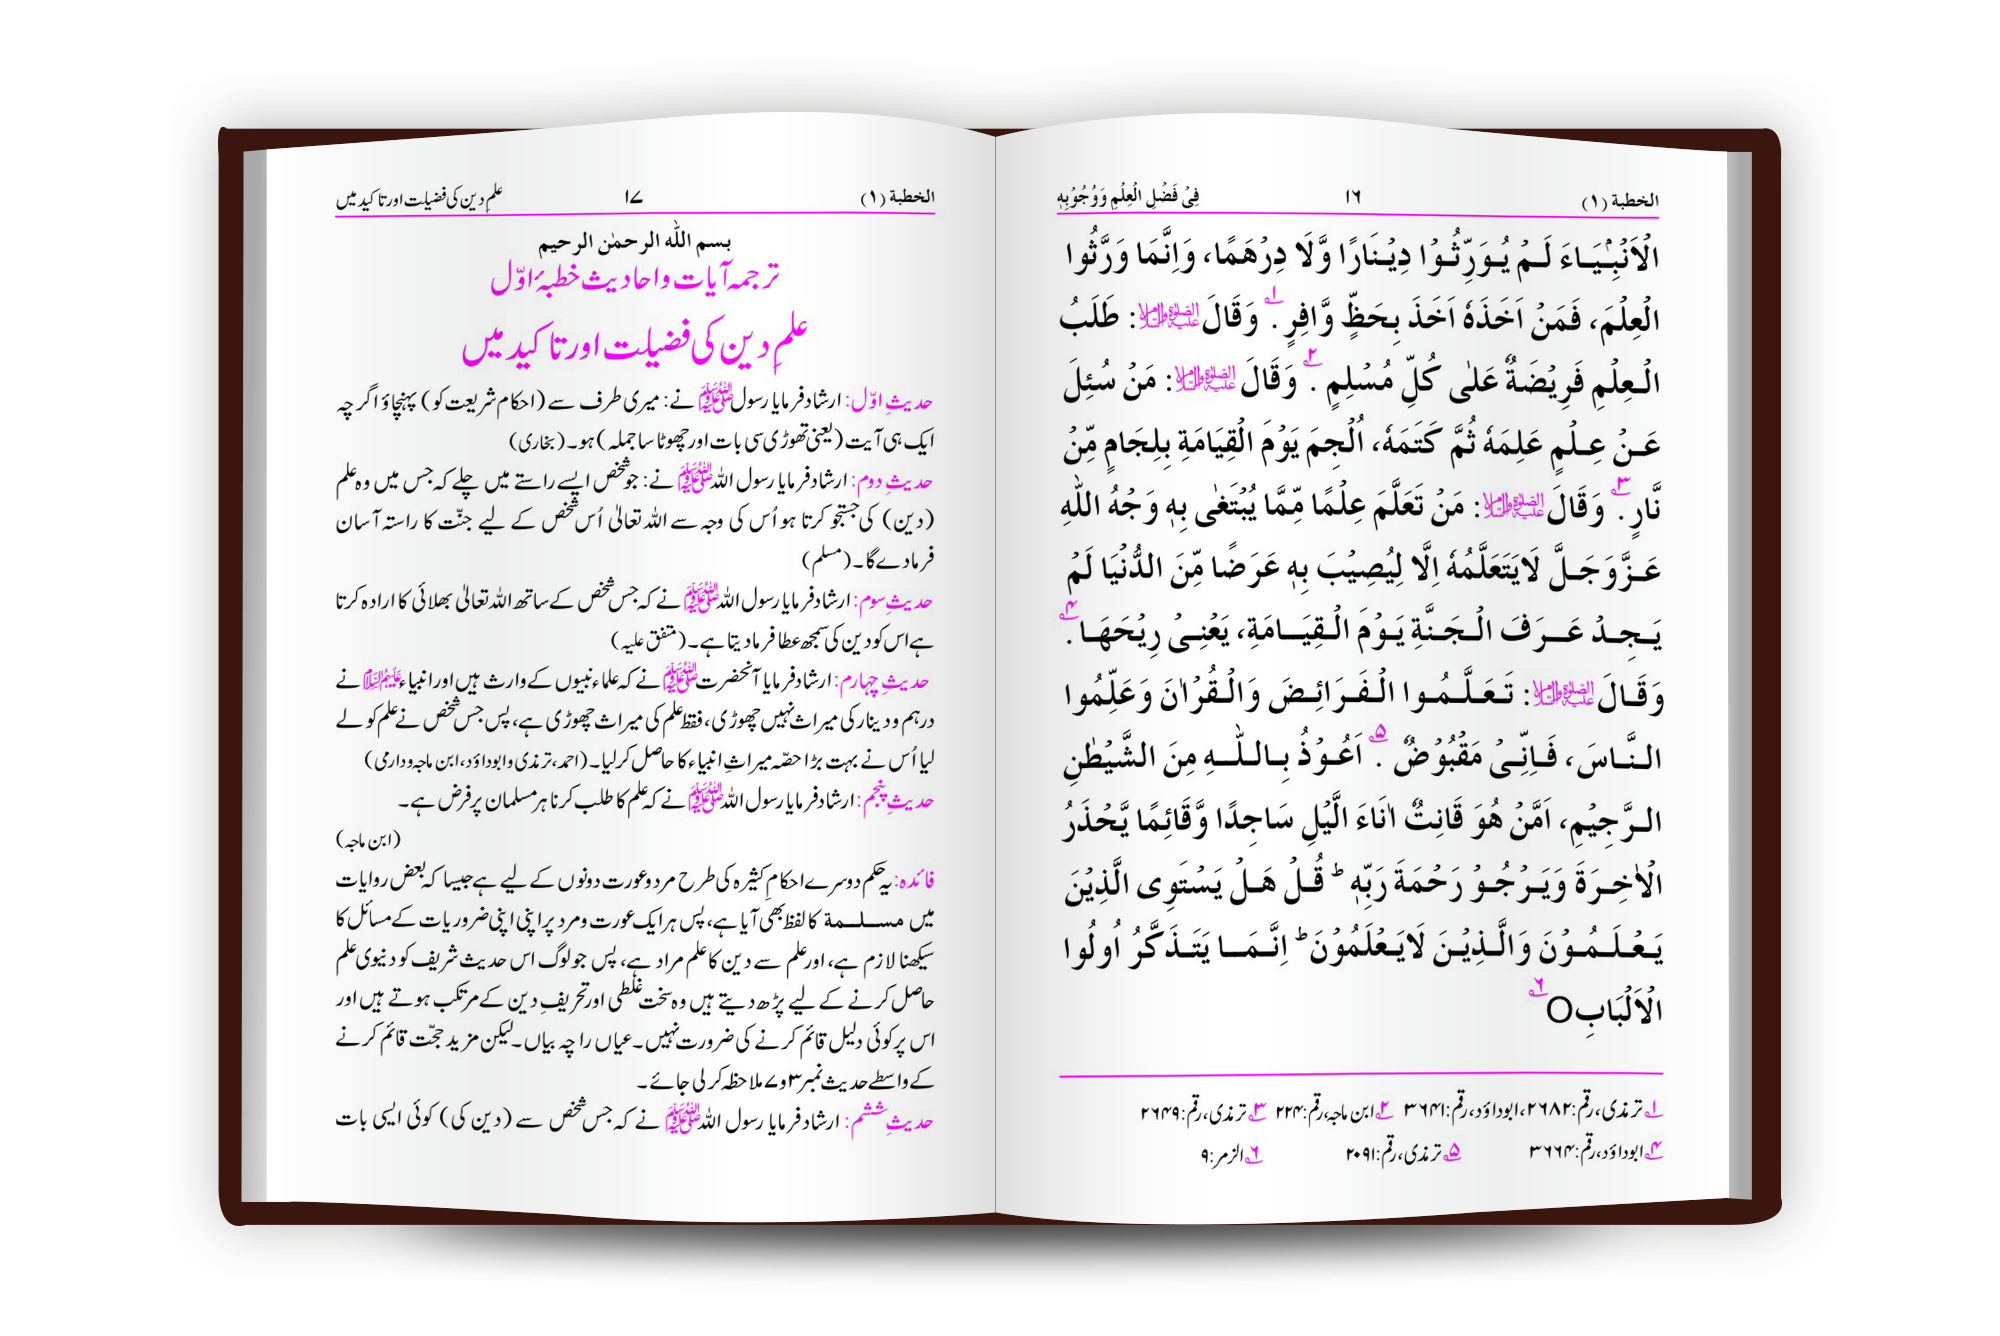 الخطبة (۱) ۱٦ فِیْ فَضْلِ الْعِلْمِ وَوُجُوْبِهٖ
الْاَنْۢبِـيَـاءَ لَـمْ يُـوَرِّثُـوْا دِيْـنَارًا وَّلَا دِرْهَمًا، وَاِنَّمَا وَرَّثُوا
الْعِلْمَ، فَمَنْ اَخَذَهٗ اَخَذَ بِحَظٍّ وَّافِرٍ.۱ وَقَالَ عليه الصلوة والسلام: طَلَبُ
الْـعِلْمِ فَرِيْضَةٌ عَلٰى كُلِّ مُسْلِمٍ.۲ وَقَالَ عليه الصلوة والسلام: مَنْ سُئِلَ
عَـنْ عِـلْمٍ عَلِمَهٗ ثُمَّ كَتَمَهٗ، اُلْجِمَ يَوْمَ الْقِيَامَةِ بِلِجَامٍ مِّنْ
نَّارٍ.۳ وَقَالَ عليه الصلوة والسلام: مَنْ تَعَلَّمَ عِلْمًا مِّمَّا يُبْتَغٰى بِهٖ وَجْهُ اللّٰهِ
عَـزَّوَجَـلَّ لَايَتَعَلَّمُهٗ اِلَّا لِيُصِيْبَ بِهٖ عَرَضًا مِّنَ الدُّنْيَا لَمْ
يَـجِـدْ عَـرَفَ الْـجَـنَّةِ يَـوْمَ الْـقِيَـامَةِ، يَعْنِـىْ رِيْحَهَـا.۴
وَقَـالَ عليه الصلوة والسلام: تَـعَـلَّـمُـوا الْـفَـرَائِـضَ وَالْـقُرْاٰنَ وَعَلِّمُوا
الـنَّـاسَ، فَـاِنِّـىْ مَقْبُوْضٌ.۵ اَعُـوْذُ بِـالـلّٰـهِ مِنَ الشَّيْطٰنِ
الـرَّجِيْمِ، اَمَّنْ هُوَ قَانِتٌ اٰنَاءَ الَّيْلِ سَاجِدًا وَّقَائِمًا يَّحْذَرُ
الْاٰخِـرَةَ وَيَـرْجُـوْ رَحْمَةَ رَبِّهٖ ط قُـلْ هَـلْ يَسْتَوِى الَّذِيْنَ
يَـعْـلَـمُـوْنَ وَالَّـذِيْـنَ لَايَـعْلَمُوْنَ ط اِنَّـمَـا يَتَـذَكَّرُ اُولُوا
الْاَلْبَابِ○۶
۱ ترمذی، رقم:۲۶۸۲، ابوداؤد، رقم:۳۶۴۱ ۲ ابن ماجہ، رقم:۲۲۴ ۳ ترمذی، رقم:۲۶۴۹
۴ ابوداؤد، رقم:۳۶۶۴ ۵ ترمذی، رقم:۲۰۹۱ ۶ الزمر:۹
الخطبة (۱) ۱۷ علمِ دین کی فضیلت اور تاکید میں
بسم اللّٰه الرحمٰن الرحيم
ترجمہ آیات و احادیث خطبۂ اوّل
علمِ دین کی فضیلت اور تاکید میں
حدیثِ اوّل: ارشاد فرمایا رسول ﷺ نے: میری طرف سے (احکام شریعت کو) پہنچاؤ اگر چہ
ایک ہی آیت (یعنی تھوڑی سی بات اور چھوٹا سا جملہ) ہو۔ (بخاری)
حدیثِ دوم: ارشاد فرمایا رسول اللہ ﷺ نے: جو شخص ایسے راستے میں چلے کہ جس میں وہ علم
(دین) کی جستجو کرتا ہو اُس کی وجہ سے اللہ تعالیٰ اُس شخص کے لیے جنّت کا راستہ آسان
فرمادے گا۔ (مسلم)
حدیثِ سوم: ارشاد فرمایا رسول اللہ ﷺ نے کہ جس شخص کے ساتھ اللہ تعالیٰ بھلائی کا ارادہ کرتا
ہے اس کو دین کی سمجھ عطا فرمادیتا ہے۔ (متفق علیہ)
حدیثِ چہارم: ارشاد فرمایا آنحضرت ﷺ نے کہ علماء نبیوں کے وارث ہیں اور انبیاء علیہم السلام نے
درہم و دینار کی میراث نہیں چھوڑی، فقط علم کی میراث چھوڑی ہے، پس جس شخص نے علم کو لے
لیا اُس نے بہت بڑا حصّہ میراثِ انبیاء کا حاصل کرلیا۔ (احمد، ترمذی و ابوداؤد، ابن ماجہ و دارمی)
حدیثِ پنجم: ارشاد فرمایا رسول اللہ ﷺ نے کہ علم کا طلب کرنا ہر مسلمان پر فرض ہے۔
(ابن ماجہ)
فائدہ: یہ حکم دوسرے احکامِ کثیرہ کی طرح مرد و عورت دونوں کے لیے ہے جیسا کہ بعض روایات
میں مسلـمـة کا لفظ بھی آیا ہے، پس ہر ایک عورت و مرد پر اپنی اپنی ضروریات کے مسائل کا
سیکھنا لازم ہے، اور علم سے دین کا علم مراد ہے، پس جو لوگ اس حدیث شریف کو دنیوی علم
حاصل کرنے کے لیے پڑھ دیتے ہیں وہ سخت غلطی اور تحریفِ دین کے مرتکب ہوتے ہیں اور
اس پر کوئی دلیل قائم کرنے کی ضرورت نہیں۔ عیاں را چہ بیاں۔ لیکن مزید حجّت قائم کرنے
کے واسطے حدیث نمبر ۳ و ۷ ملاحظہ کرلی جائے۔
حدیثِ ششم: ارشاد فرمایا رسول اللہ ﷺ نے کہ جس شخص سے (دین کی) کوئی ایسی بات